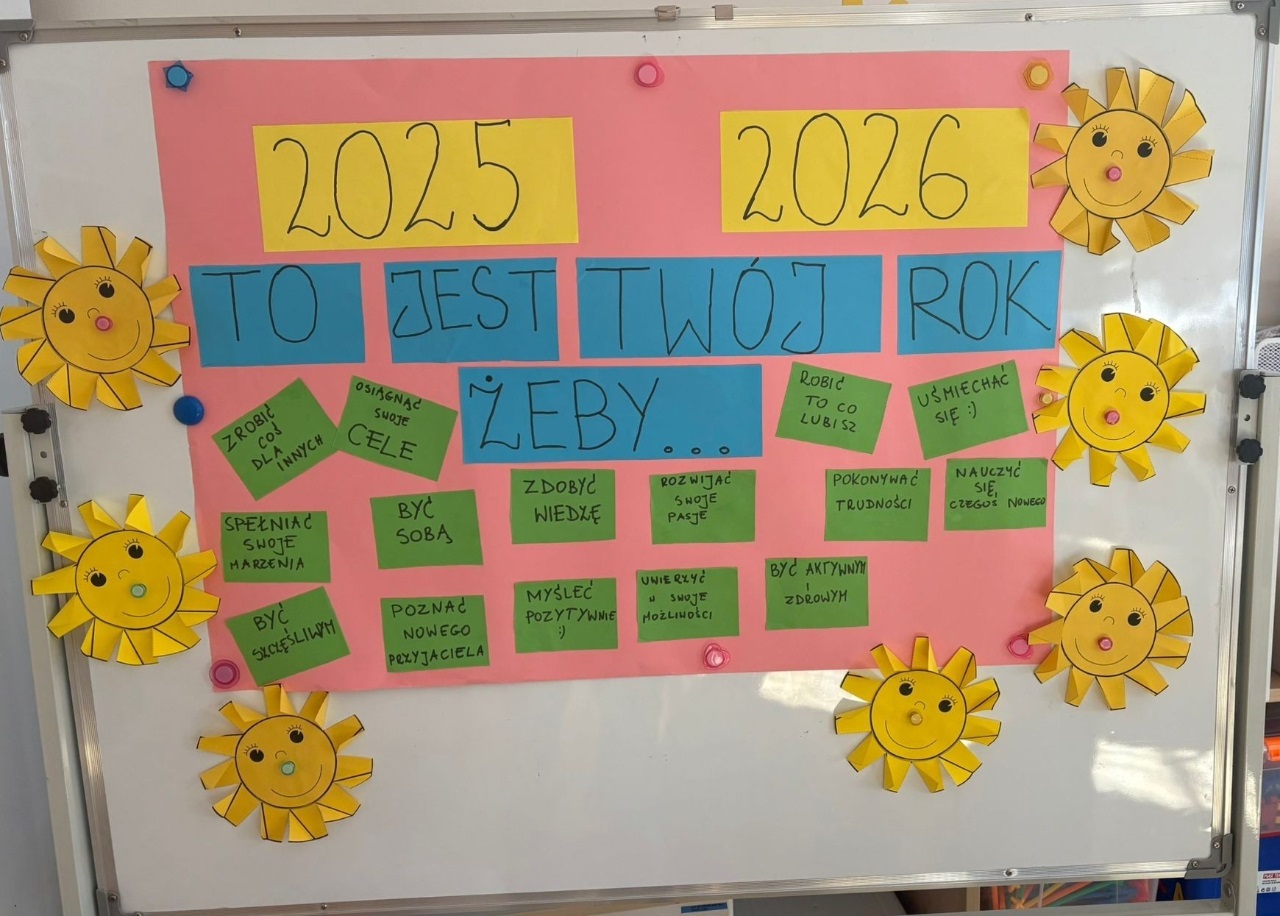 2025 2026
TO JEST TWÓJ ROK
ŻEBY...
ZROBIĆ
COŚ
DLA
INNYCH
OSIĄGNĄĆ
SWOJE
CELE
ROBIĆ
TO CO
LUBISZ
UŚMIECHAĆ
SIĘ :)
SPEŁNIAĆ
SWOJE
MARZENIA
BYĆ
SOBĄ
ZDOBYĆ
WIEDZĘ
ROZWIJAĆ
SWOJE
PASJE
POKONYWAĆ
TRUDNOŚCI
NAUCZYĆ
SIĘ
CZEGOŚ NOWEGO
BYĆ
SZCZĘŚLIWYM
POZNAĆ
NOWEGO
PRZYJACIELA
MYŚLEĆ
POZYTYWNIE
:)
UWIERZYĆ
W SWOJE
MOŻLIWOŚCI
BYĆ AKTYWNYM
I
ZDROWYM